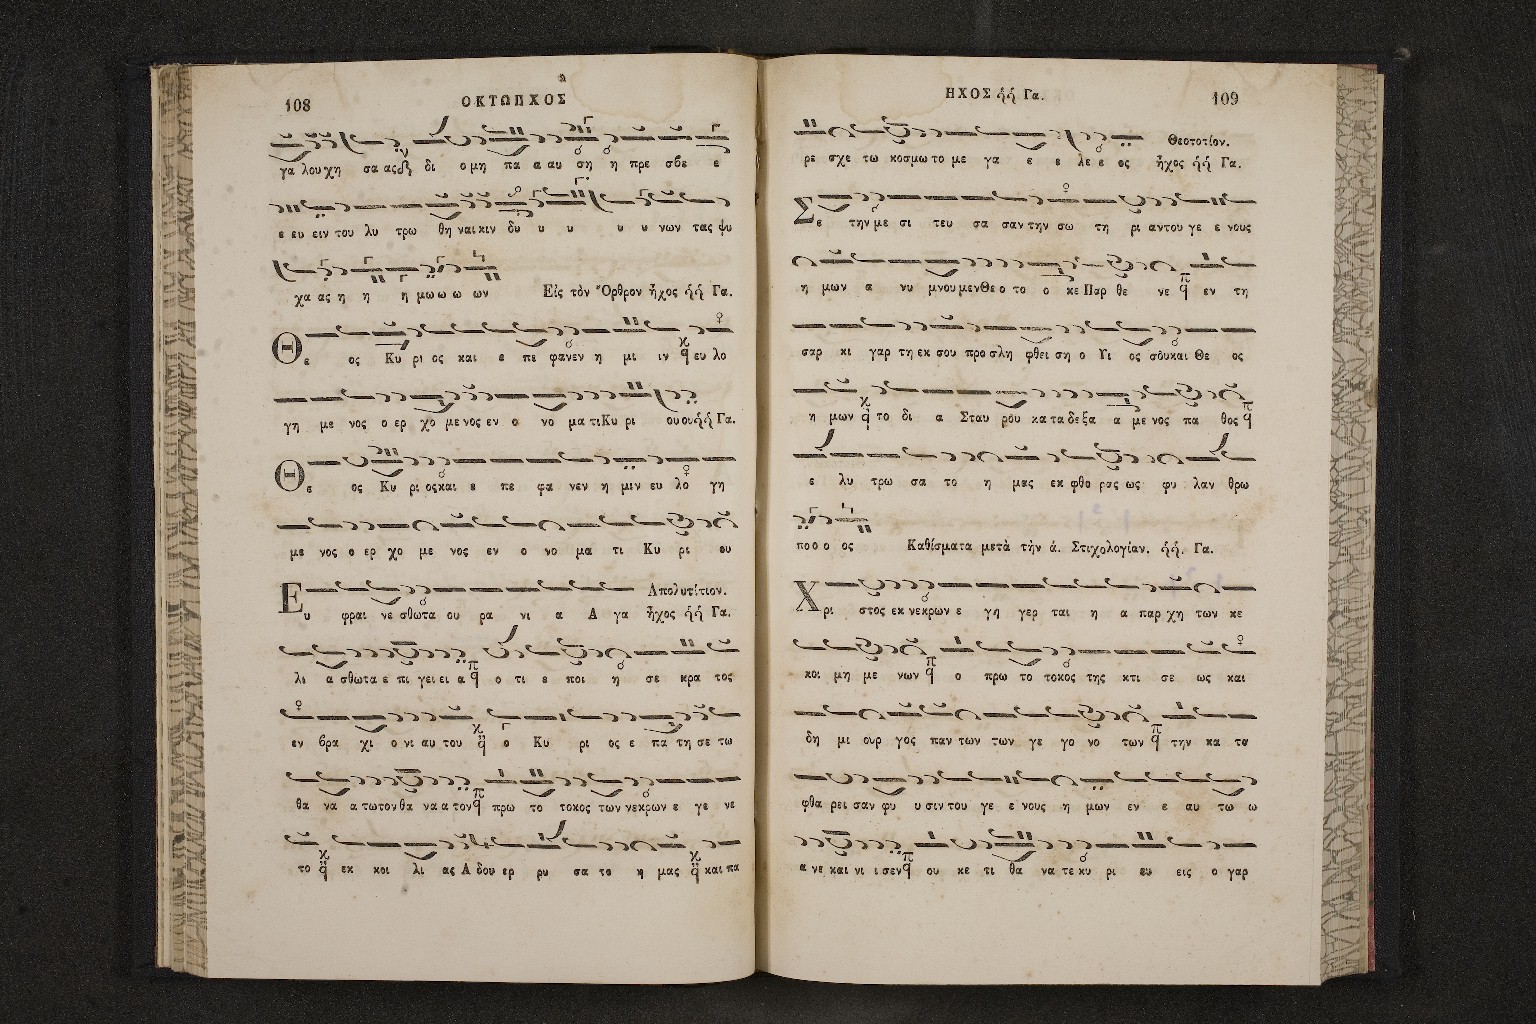 108 ΟΚΤΩΗΧΟΣ
γα λου χη σα ας δι ο μη πα α αυ ση η πρε σβε ε
ε ευ ειν του λυ τρω θη ναι κιν δυ υ υ υ υ νων τας ψυ
χα ας η η η μω ω ω ων Εἰς τὸν Ὄρθρον ἦχος ἡἡ Γα.
Θε ος Κυ ρι ος και ε πε φανεν η μι ιν ευ λο
γη με νος ο ερ χο με νος εν ο νο μα τι Κυ ρι ου ου ἡἡ Γα.
Θε ος Κυ ρι ος και ε πε φα νεν η μιν ευ λο γη
με νος ο ερ χο με νος εν ο νο μα τι Κυ ρι ου
Απολυτίτιον.
Ευ φραι νε σθωτα ου ρα νι α Α γα ἦχος ἡἡ Γα.
λι α σθωτα ε πι γει ει α ο τι ε ποι η σε κρα τος
εν βρα χι ο νι αυ του ο Κυ ρι ος ε πα τη σε τω
θα να α τωτον θα να α τον πρω το τοκος των νεκρων ε γε νε
το εκ κοι λι ας Α δου ερ ρυ σα το η μας και πα
ΗΧΟΣ ἡἡ Γα. 109
ρε σχε τω κοσμω το με γα ε ε λε ε ος ἦχος ἡἡ Γα.
Θεοτοτίον.
Σε την με σι τευ σα σαν την σω τη ρι αν του γε ε νους
η μων α νυ μνου μεν Θε ο το ο κε Παρ θε νε εν τη
σαρ κι γαρ τη εκ σου προ σλη φθει ση ο Υι ος σουκαι Θε ος
η μων το δι α Σταυ ρου κα τα δε ξα α με νος πα θος
ε λυ τρω σα το η μας εκ φθο ρας ως φυ λαν θρω
πο ο ο ος Καθίσματα μετὰ τὴν ά. Στιχολογίαν. ἡἡ. Γα.
Χρι στος εκ νεκρων ε γη γερ ται η α παρ χη των κε
κοι μη με νων ο πρω το τοκος της κτι σε ως και
δη μι ουρ γος παν των των γε γο νο των την κα τα
φθα ρει σαν φυ υ σιν του γε ε νους η μων εν ε αυ τω ω
α νε και νι ι σεν ου κε τι θα να τε κυ ρι ευ εις ο γαρ